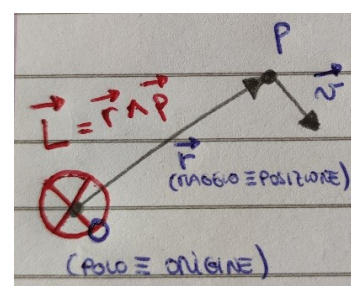 P
L⃗ = r⃗ ∧ P⃗
v⃗
r⃗
(RAGGIO ≡ POSIZIONE)
O
(POLO ≡ ORIGINE)